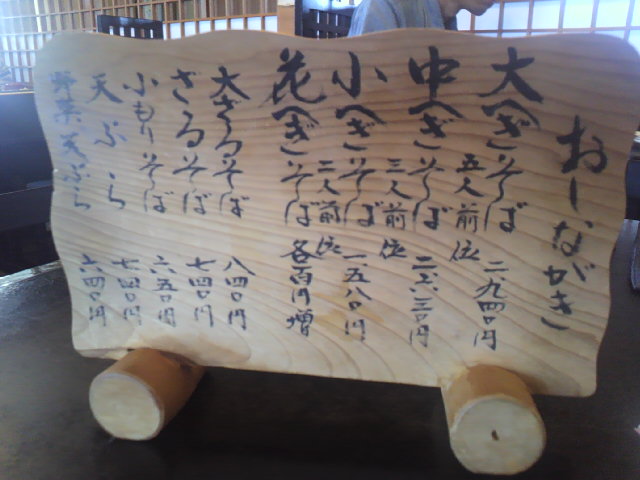 おしながき
大へぎそば 五人前位 二、九四〇円
中へぎそば 三人前位 二、六三〇円
小へぎそば 二人前位 一、五八〇円
花へぎそば 各百円増
大ざるそば 八四〇円
ざるそば 七四〇円
小もりそば 六五〇円
天ぷら 七四〇円
野菜天ぷら 六四〇円